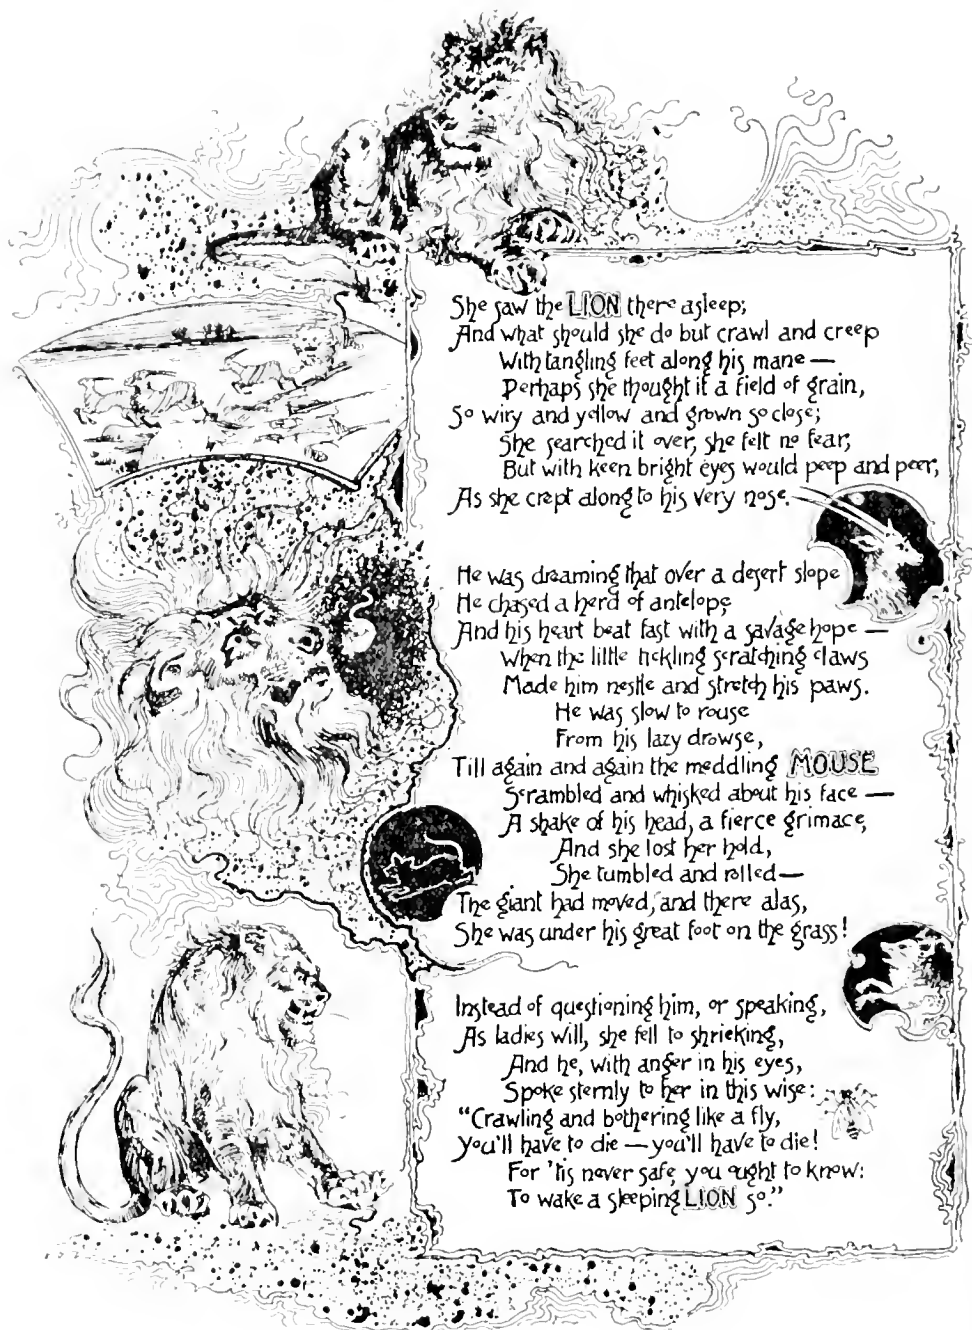 She saw the LION there asleep;
And what should she do but crawl and creep
With tangling feet along his mane —
Perhaps she thought it a field of grain,
So wiry and yellow and grown so close;
She searched it over, she felt no fear,
But with keen bright eyes would peep and peer,
As she crept along to his very nose.
He was dreaming that over a desert slope
He chased a herd of antelope,
And his heart beat fast with a savage hope —
When the little tickling scratching claws
Made him nestle and stretch his paws.
He was slow to rouse
From his lazy drowse,
Till again and again the meddling MOUSE
Scrambled and whisked about his face —
A shake of his head, a fierce grimace,
And she lost her hold,
She tumbled and rolled —
The giant had moved, and there alas,
She was under his great foot on the grass!
Instead of questioning him, or speaking,
As ladies will, she fell to shrieking,
And he, with anger in his eyes,
Spoke sternly to her in this wise:
"Crawling and bothering like a fly,
You'll have to die — you'll have to die!
For 'tis never safe, you ought to know:
To wake a sleeping LION so."